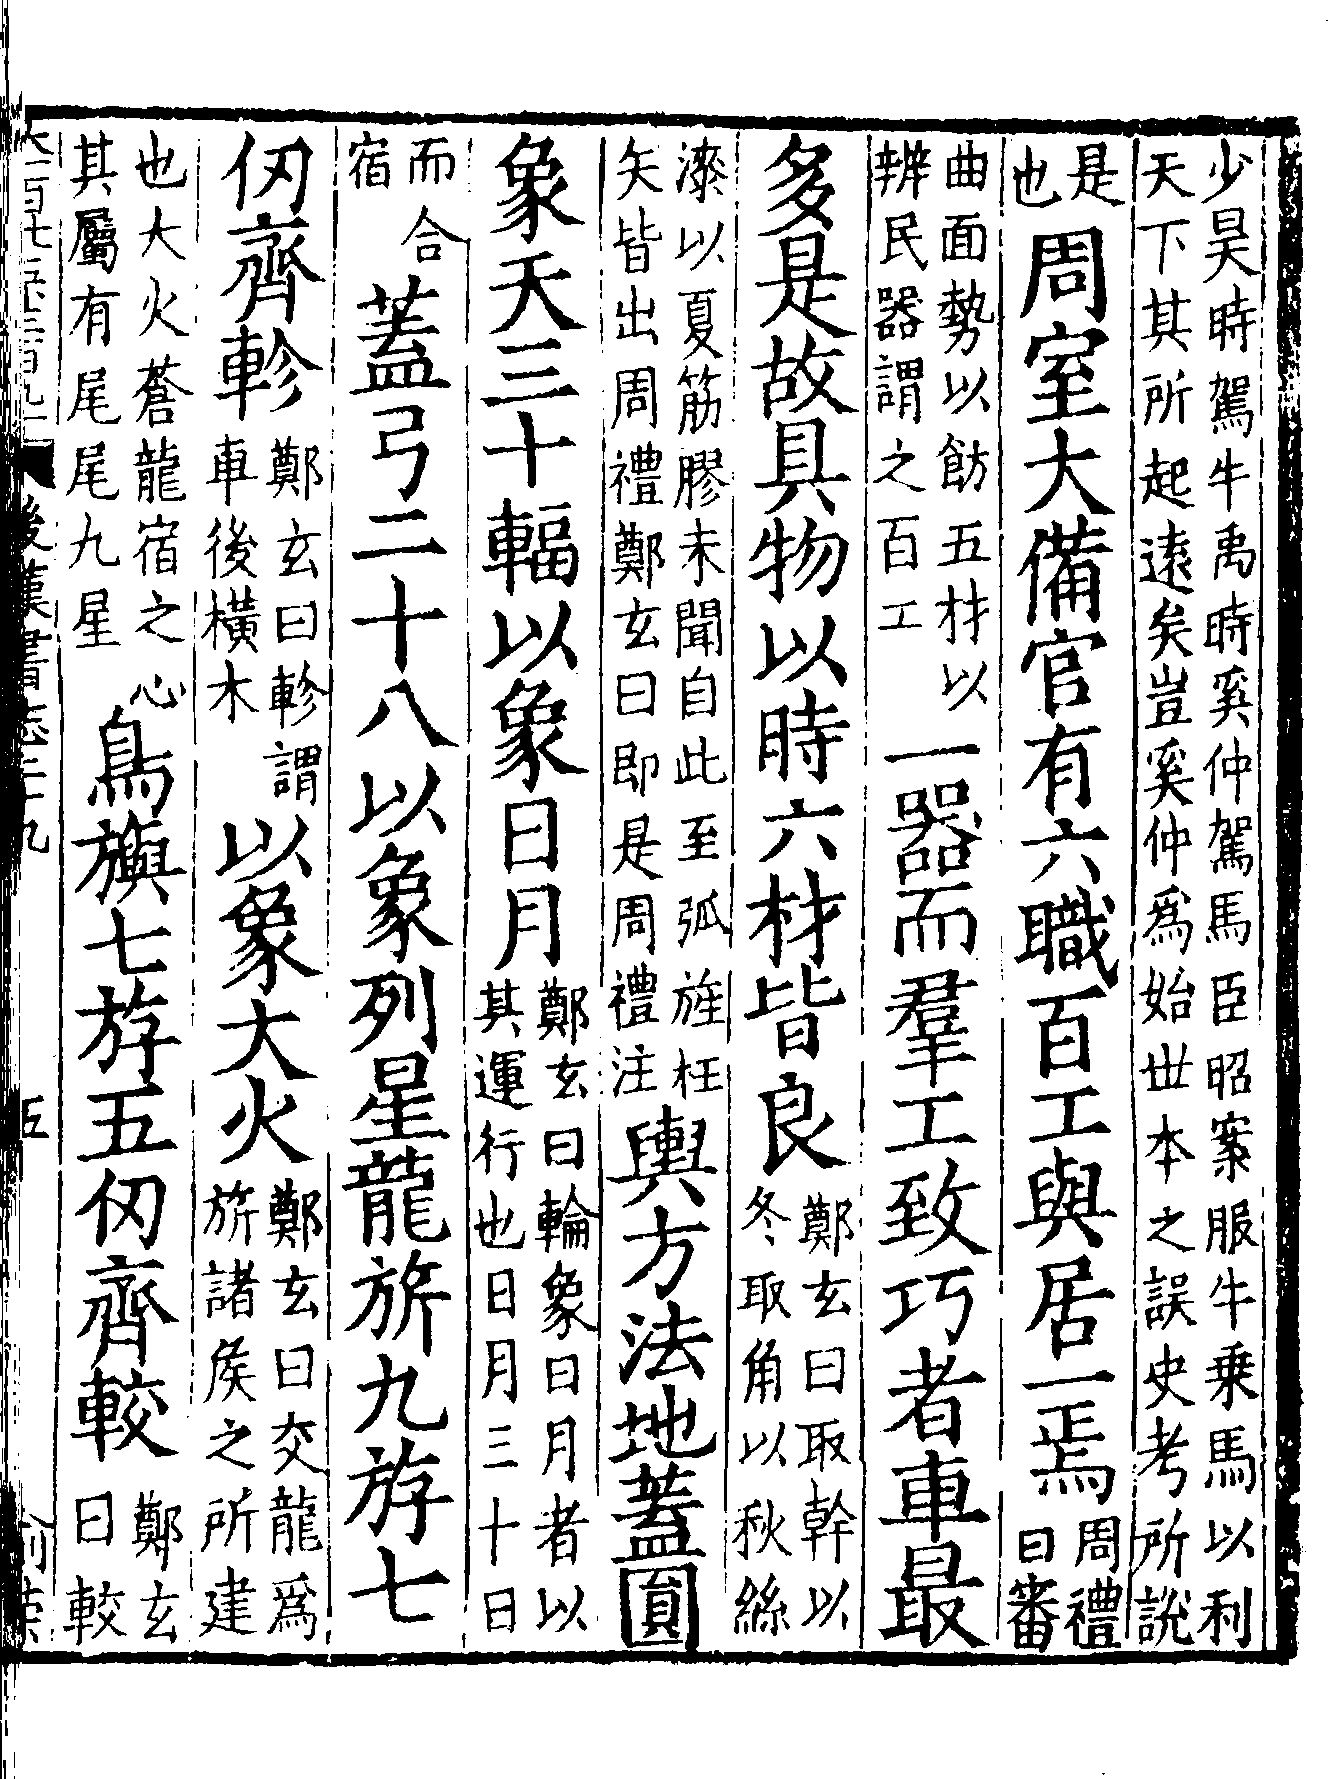 少昊時駕牛禹時奚仲駕馬臣昭案服牛乗馬以利
天下其所起遠矣豈奚仲爲始世本之誤史考所說
是
也
周室大備官有六職百工與居一焉
周禮
曰審
曲面勢以飭五材以
辨民器謂之百工
一器而羣工致巧者車最
多是故具物以時六材皆良
鄭玄曰取幹以
冬取角以秋絲
漆以夏筋膠未聞自此至弧旌枉
矢皆出周禮鄭玄曰即是周禮注
輿方法地蓋圓
象天三十輻以象日月
鄭玄曰輪象日月者以
其運行也日月三十日
而合
宿
蓋弓二十八以象列星龍旂九斿七
仞齊軫
鄭玄曰軫謂
車後橫木
以象大火
鄭玄曰交龍爲
旂諸侯之所建
也大火蒼龍宿之心
其屬有尾尾九星
鳥旟七斿五仞齊較
鄭玄
曰較
後漢書志二十九
五